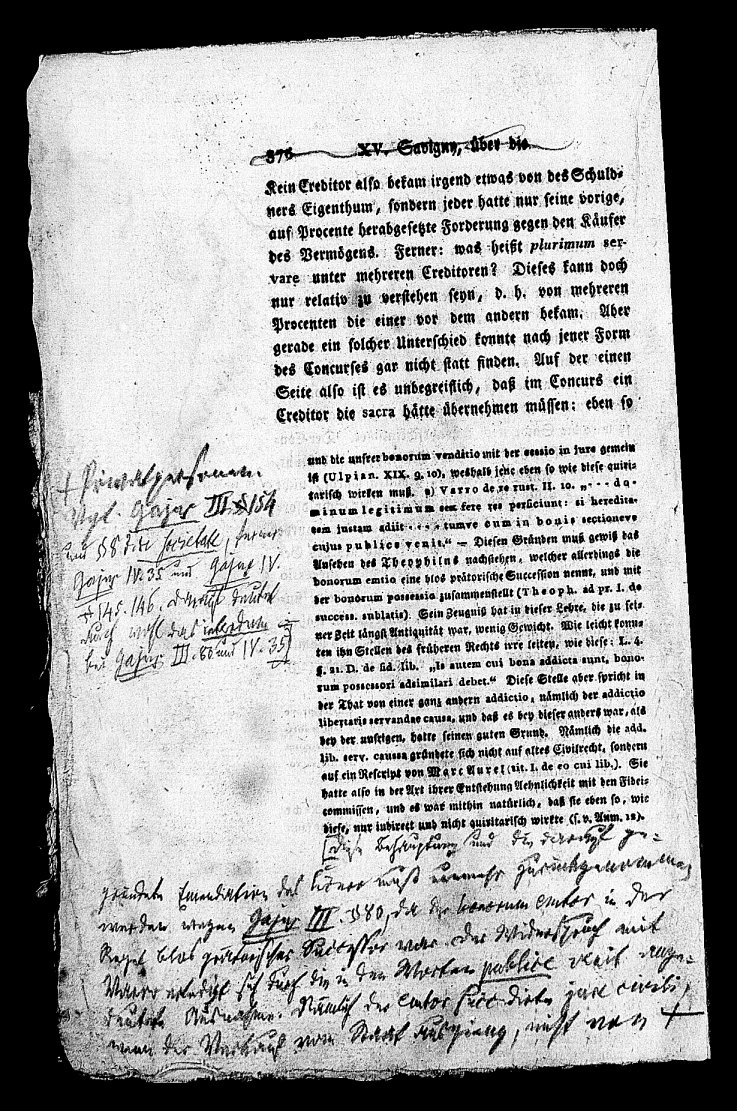 376 XV. Savigny, über die
Kein Creditor also bekam irgend etwas von des Schuld-
ners Eigenthum, sondern jeder hatte nur seine vorige,
auf Procente herabgesetzte Forderung gegen den Käufer
des Vermögens. Ferner: was heißt plurimum ser-
vare unter mehreren Creditoren? Dieses kann doch
nur relativ zu verstehen seyn, d. h. von mehreren
Procenten die einer vor dem andern bekam. Aber
gerade ein solcher Unterschied konnte nach jener Form
des Concurses gar nicht statt finden. Auf der einen
Seite also ist es unbegreiflich, daß im Concurs ein
Creditor die sacra hätte übernehmen müssen: eben so
und die unsrer bonorum venditio mit der cessio in jure gemein
ist (Ulpian. XIX. 9. 10), weshalb jene eben so wie diese quiri-
tarisch wirken muß. 2) Varro de re rust. II. 10. „ · · · do-
minum legitimum sex fere res perficiunt: si heredita-
tem justam adiit · · · · tumve cum in bonis sectioneve
cujus publice venit.“ — Diesen Gründen muß gewiß das
Ansehen des Theophilus nachstehen, welcher allerdings die
bonorum emtio eine blos prätorische Succession nennt, und mit
der bonorum possessio zusammenstellt (Theoph. ad pr. I. de
success. sublatis). Sein Zeugniß hat in dieser Lehre, die zu sei-
ner Zeit längst Antiquität war, wenig Gewicht. Wie leicht konn-
ten ihn Stellen des früheren Rechts irre leiten, wie diese: L. 4.
§. 21. D. de fid. lib. „Is autem cui bona addicta sunt, bono-
rum possessori adsimilari debet.“ Diese Stelle aber spricht in
der That von einer ganz andern addictio, nämlich der addictio
libertatis servandae causa, und daß es bey dieser anders war, als
bey der unsrigen, hatte seinen guten Grund. Nämlich die add.
lib. serv. caussa gründete sich nicht auf altes Civilrecht, sondern
auf ein Rescript von Marc Aurel (tit. I. de eo cui lib.). Sie
hatte also in der Art ihrer Entstehung Aehnlichkeit mit den Fidei-
commissen, und es war mithin natürlich, daß sie eben so, wie
diese, nur indirect und nicht quiritarisch wirkte (s. v. Anm. 12).
[Diese Behauptung und die darauf ge-
gründete Emendation des muß nunmehr zurückgenommen
werden wegen Gajus III. §80, da der bonorum emtor in der
Regel blos prätorischer Successor war. Der Widerspruch mit
Varro erledigt sich durch die in den Worten publice venit ange-
deutete Ausnahme. Nämlich der emtor succedirte jure civili,
wenn der Verkauf vom Staat ausging, nicht von +
+ Privatpersonen.
Vgl. Gajus III §154
und §8 societate, ferner
Gajus IV. 35 und Gajus IV.
§145. 146. Darauf deutet
auch wohl das interdum
bei Gajus III. 80 und IV. 35]